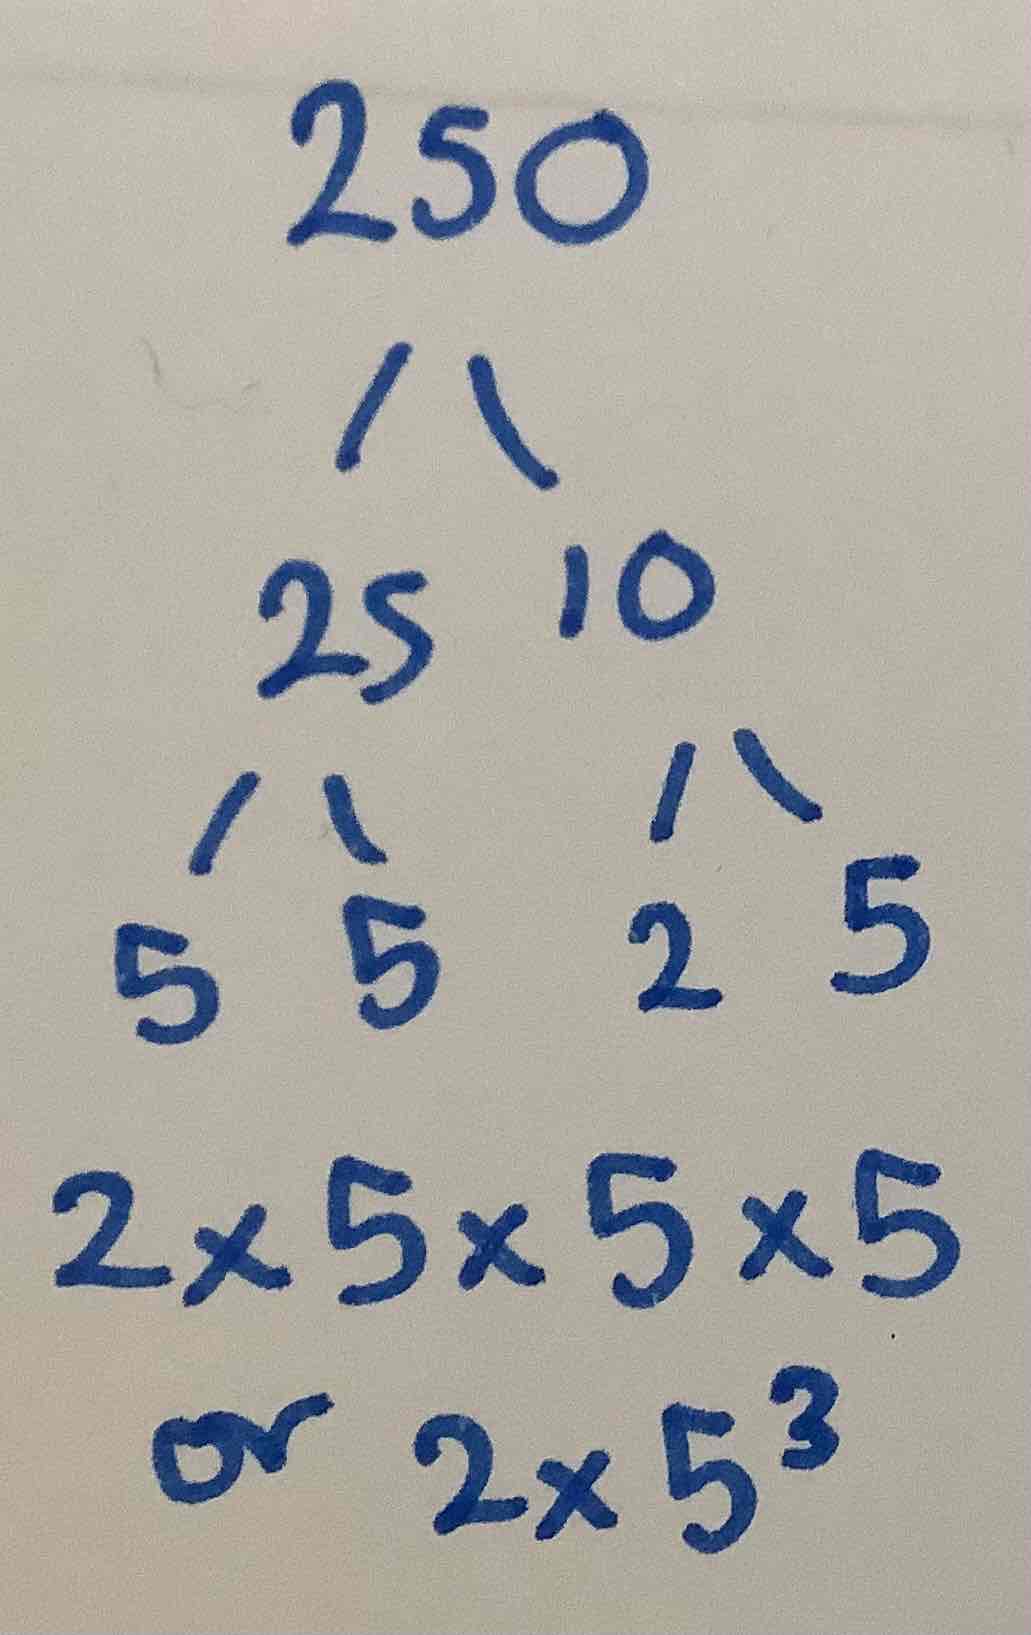 250
25 10
5 5 2 5
2 x 5 x 5 x 5
or 2 x 5³